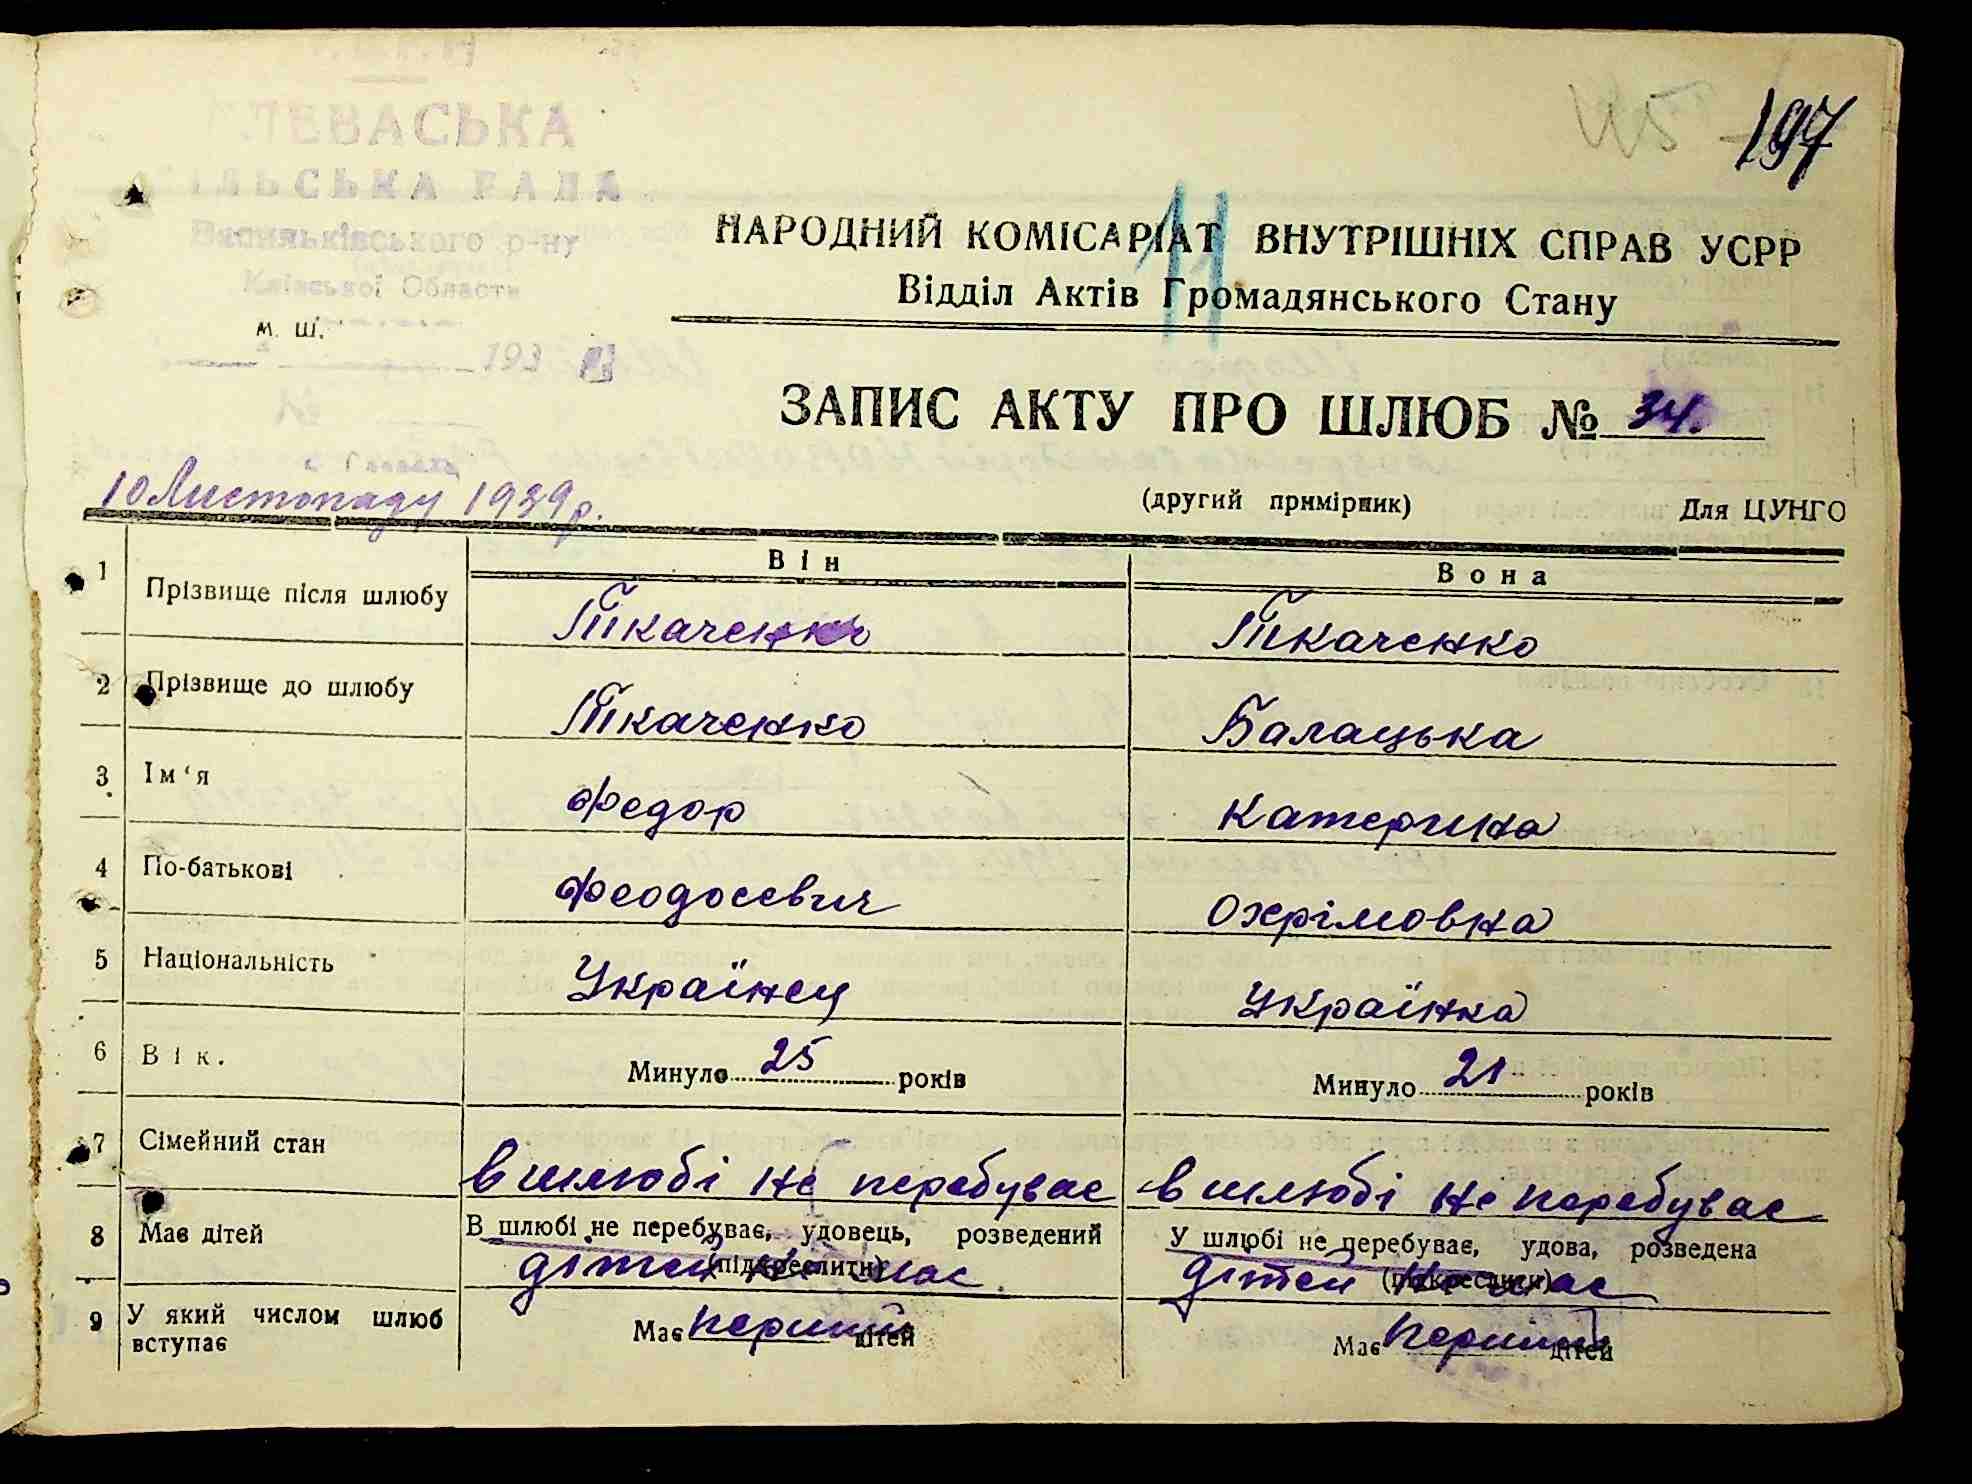 197
ЛЬСЬКА РАДА
Васильківського р-ну
Київської Области
м. ш.
193
НАРОДНИЙ КОМІСАРІАТ ВНУТРІШНІХ СПРАВ УСРР
11
Відділ Актів Громадянського Стану
ЗАПИС АКТУ ПРО ШЛЮБ № 34.
10 Листопаду 1939 р.
(другий примірник) Для ЦУНГО
Він Вона
1 Прізвище після шлюбу Ткаченко Ткаченко
2 Прізвище до шлюбу Ткаченко Балацька
3 Ім'я Федор Катерина
4 По-батькові Феодосевич Охрімовна
5 Національність Українец Українка
6 Вік. Минуло 25 років Минуло 21 років
7 Сімейний стан в шлюбі не перебуває в шлюбі не перебуває
В шлюбі не перебуває, удовець, розведений У шлюбі не перебуває, удова, розведена
(підкреслити) (підкреслити)
8 Має дітей дітей не має. дітей не має
Має дітей Має дітей
9 У який числом шлюб вступає перший перший